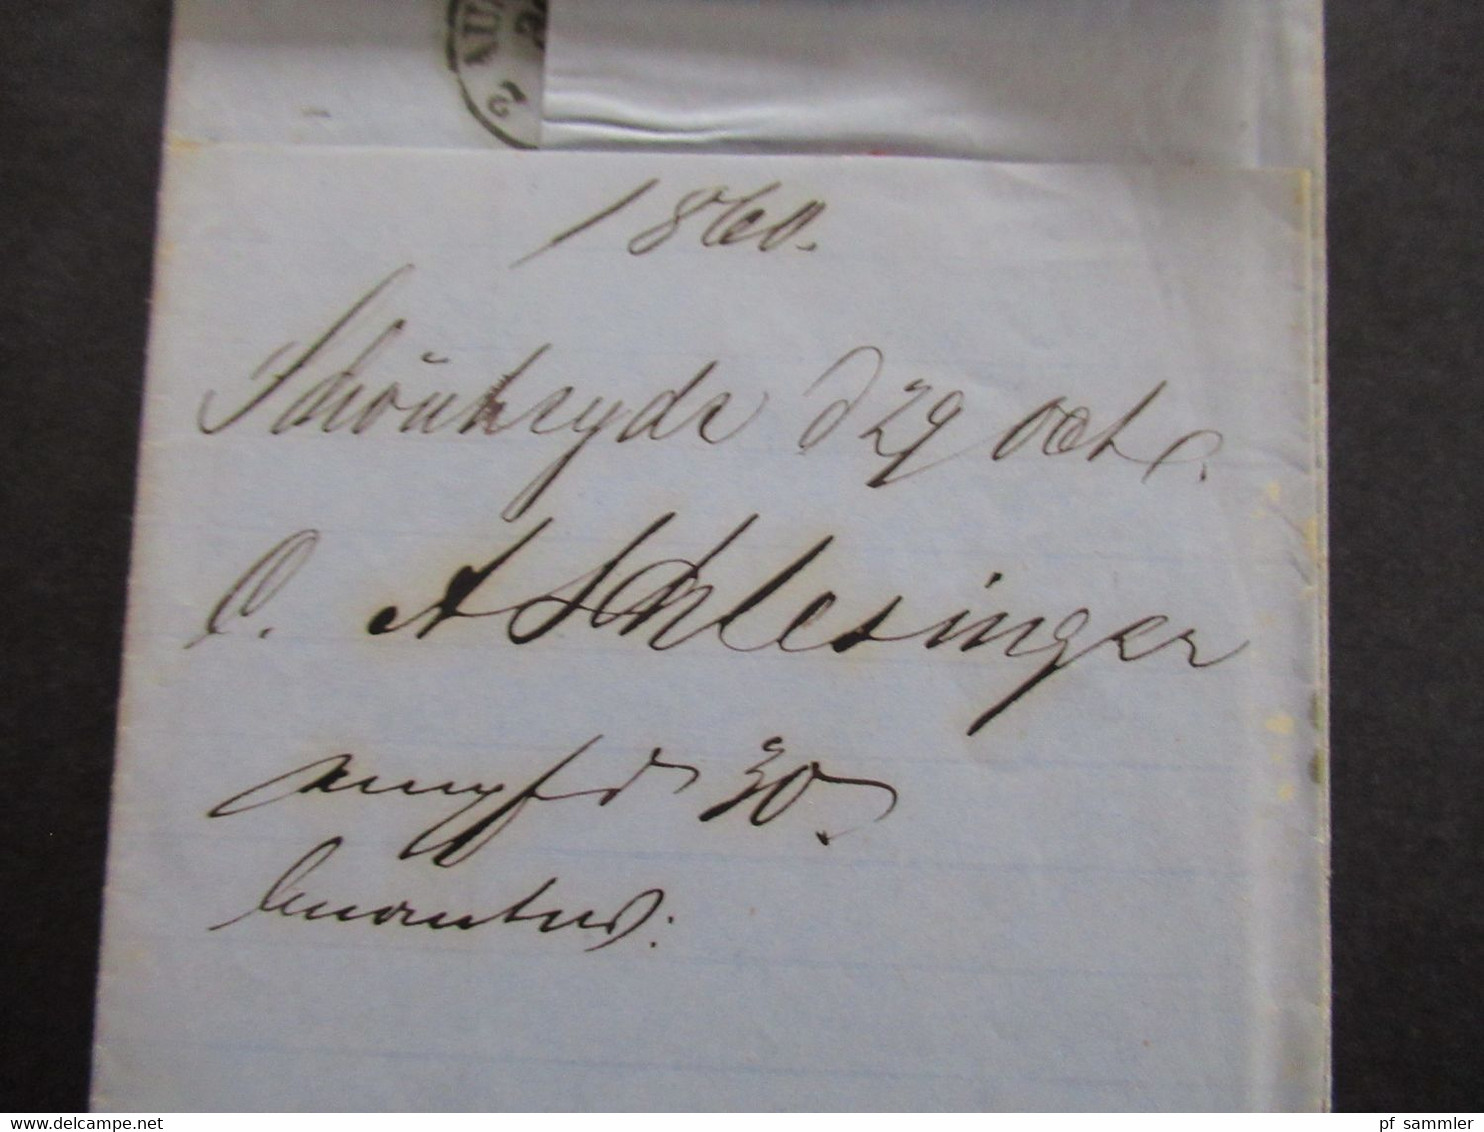 AU
1860.
Schönheyde d 29 Oct
A Schlesinger
empf d 30
beantw.
www.delcampe.net
pf_sammler